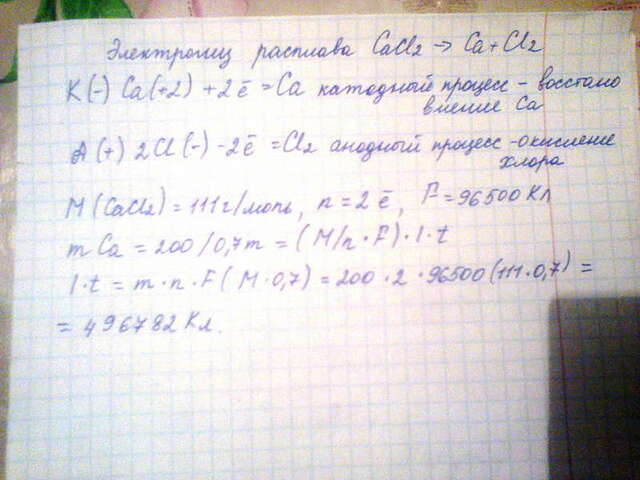 Электролиз расплава CaCl2 → Ca + Cl2
K(-) Ca(+2) + 2ē = Ca катодный процесс - восстано
вление Ca
A(+) 2Cl(-) - 2ē = Cl2 анодный процесс - окисление
хлора
M(CaCl2) = 111 г/моль, n = 2ē, F = 96500 Кл
mCa = 200/0,7m = (M/n·F)·I·t
I·t = m·n·F(M·0,7) = 200·2·96500(111·0,7) =
= 496782 Кл.